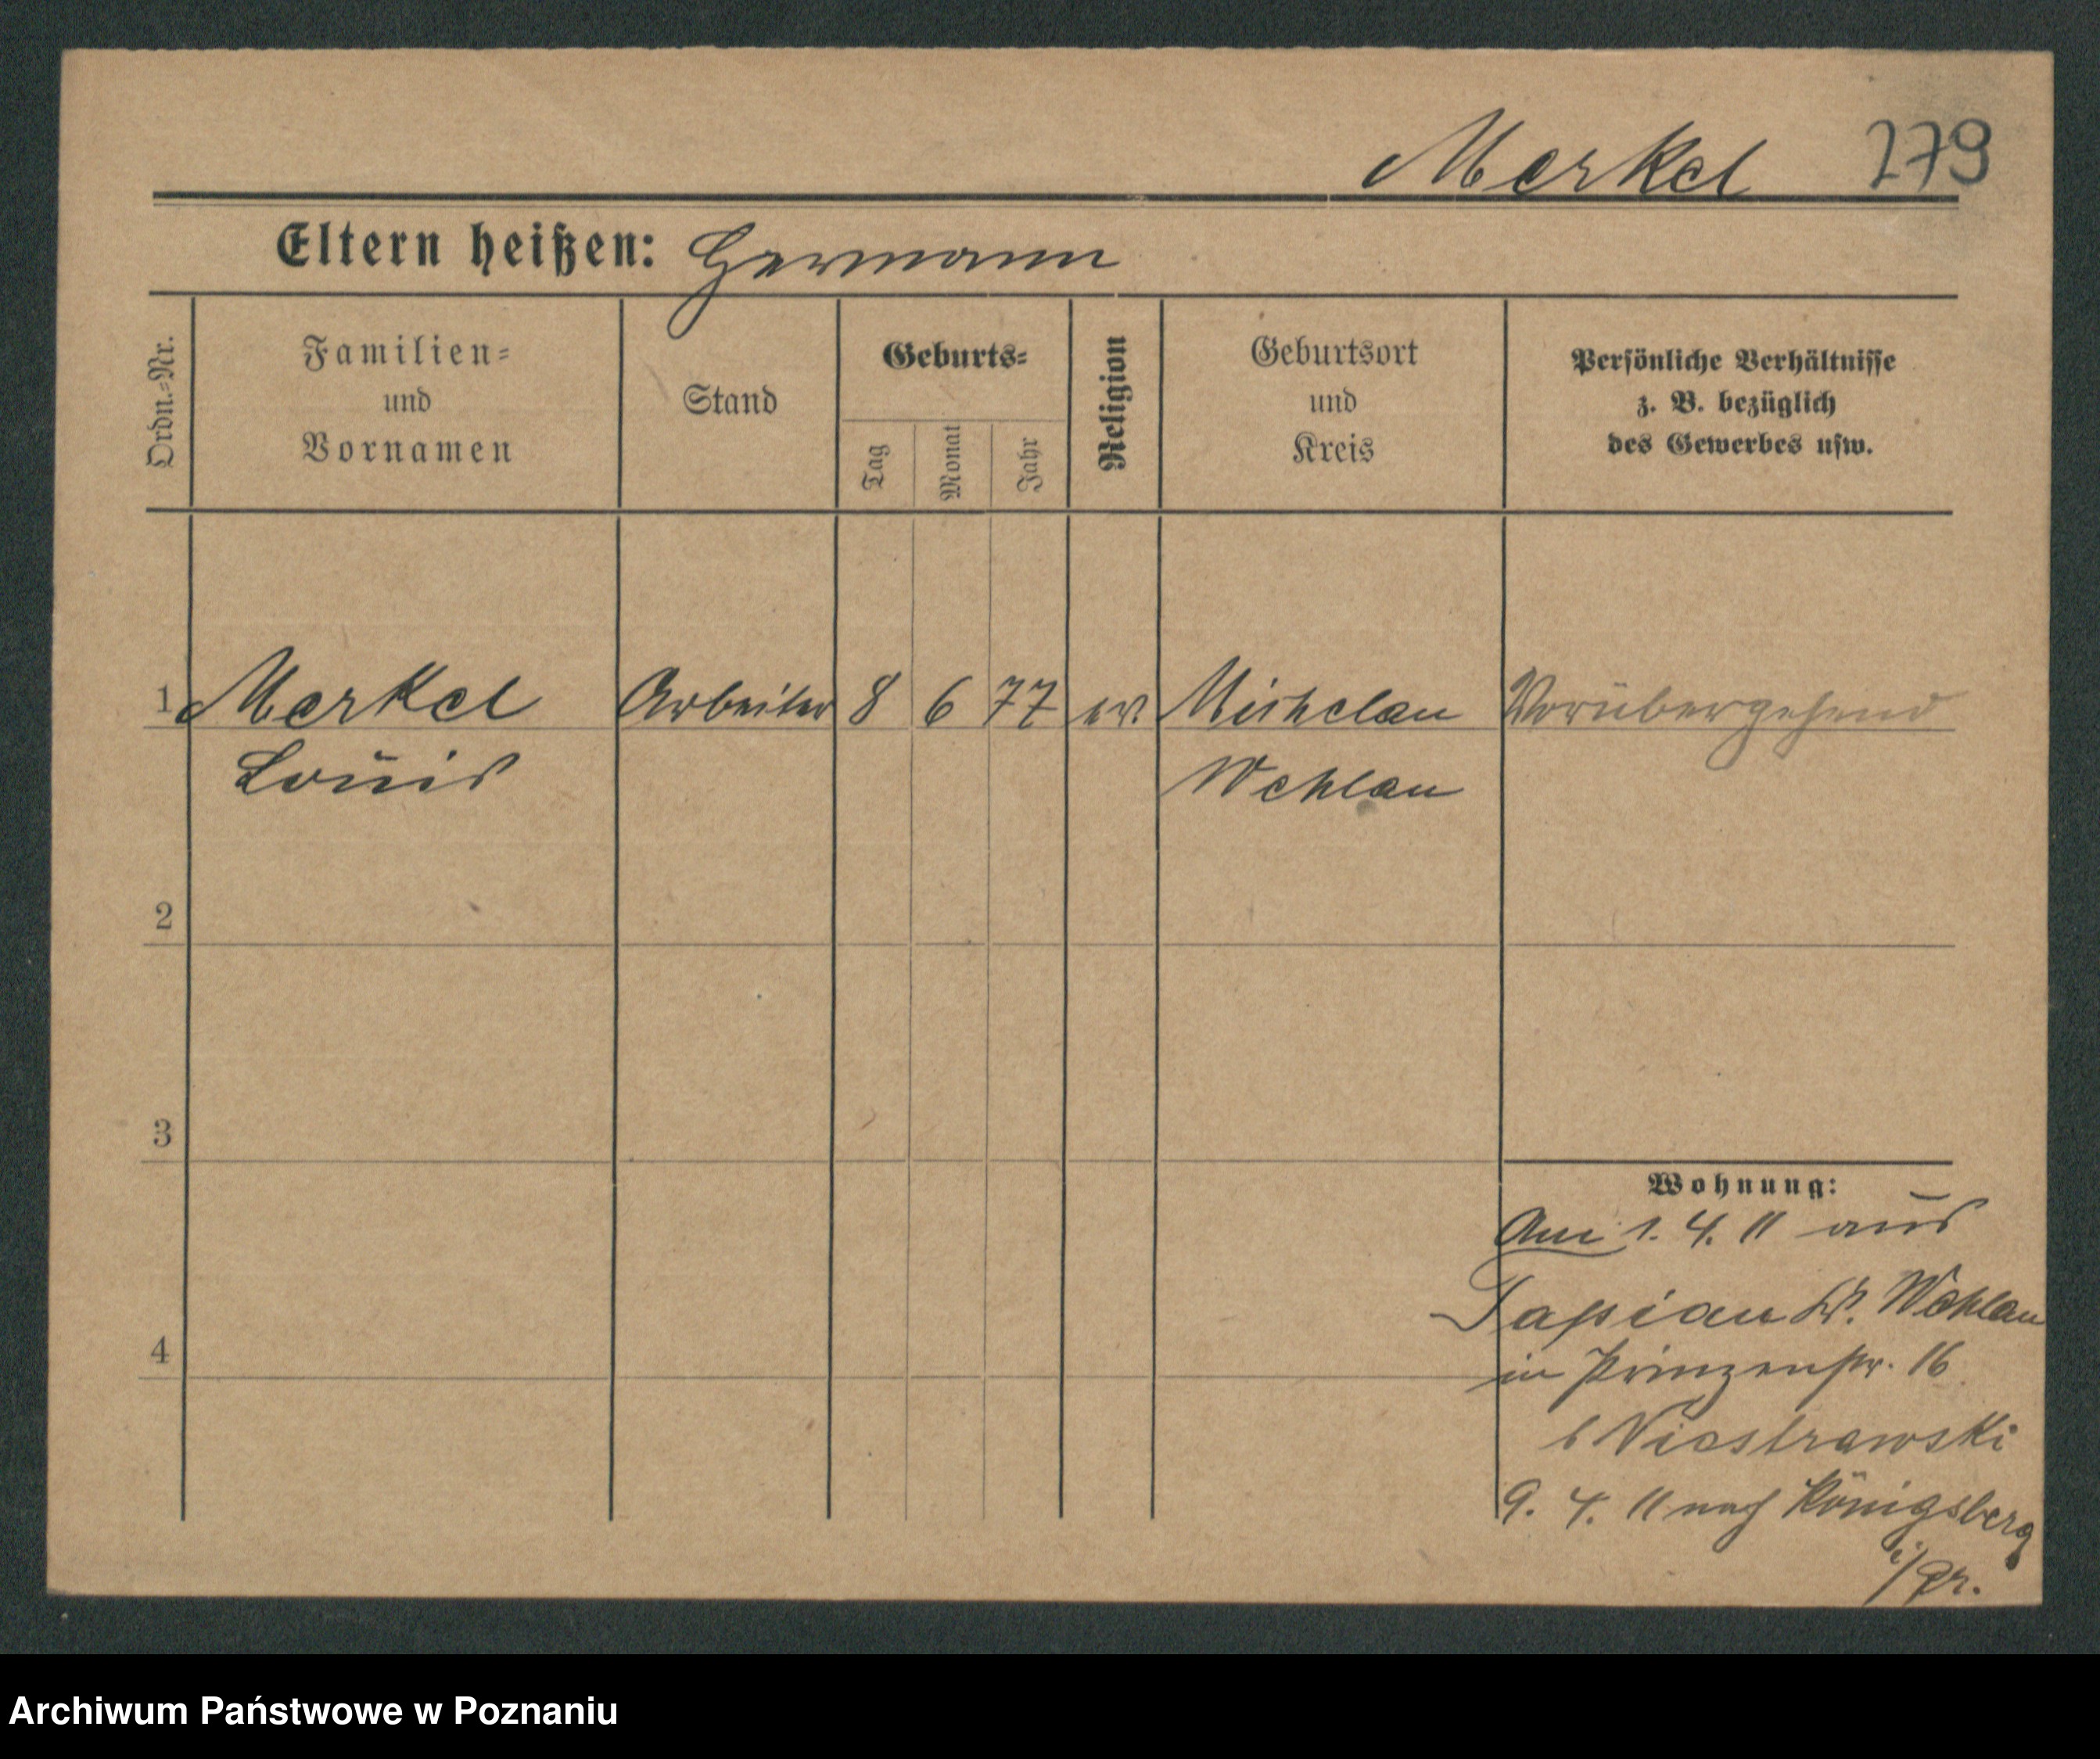 Merkel 279
Eltern heißen: Hermann
Ordn.=Nr.
Familien=
und
Vornamen
Stand
Geburts=
Tag
Monat
Jahr
Religion
Geburtsort
und
Kreis
Persönliche Verhältnisse
z. B. bezüglich
des Gewerbes usw.
1 Merkel Arbeiter 8 6 77 ev. Michelau Vorübergehend
Louis Wehlau
2
3
4
Wohnung:
Am 1. 4. 11 aus
Tapiau Kr. Wehlau
in Prinzenstr. 16
b Niestrawski
9. 4. 11 nach Königsberg
i/Pr.
Archiwum Państwowe w Poznaniu